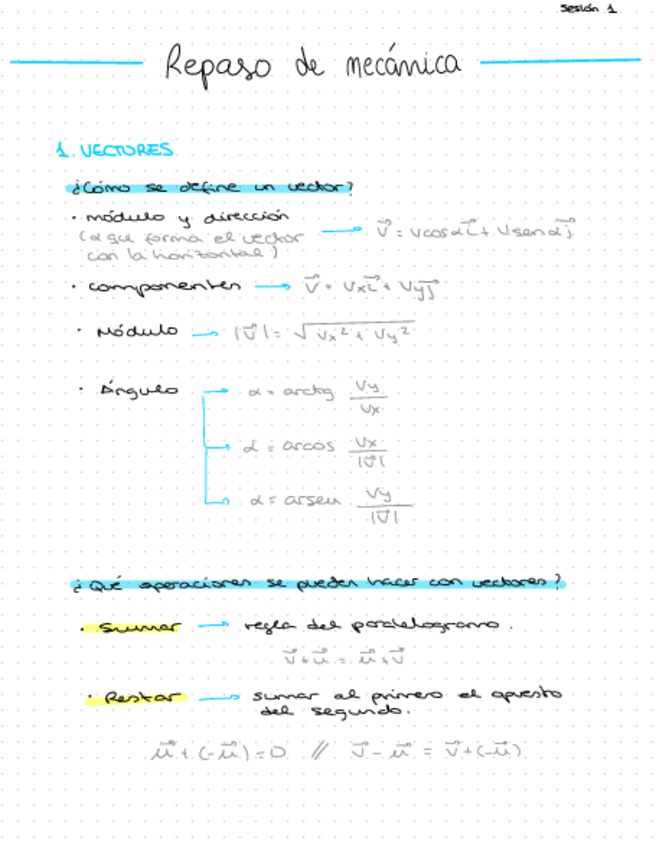 Sesión 1
Repaso de mecánica
1. VECTORES
¿Cómo se define un vector?
· módulo y dirección
(α que forma el vector → v⃗ = vcosαi⃗ + vsenαj⃗
con la horizontal)
· componentes → v⃗ = vxi⃗ + vyj⃗
· Módulo → |v⃗| = √(vx² + vy²)
· Ángulo → α = arctg vy/vx
→ α = arcos vx/|v⃗|
→ α = arsen vy/|v⃗|
¿Qué operaciones se pueden hacer con vectores?
· Sumar → regla del paralelogramo.
v⃗ + u⃗ = u⃗ + v⃗
· Restar → sumar al primero el opuesto
del segundo.
u⃗ + (-u⃗) = 0 // v⃗ - u⃗ = v⃗ + (-u⃗)